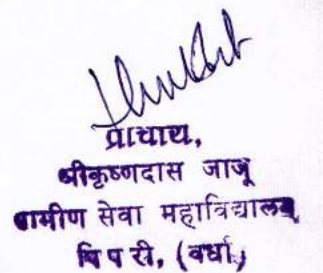 प्राचार्य,
श्रीकृष्णदास जाजू
ग्रामीण सेवा महाविद्यालय
पिपरी, (वर्धा)